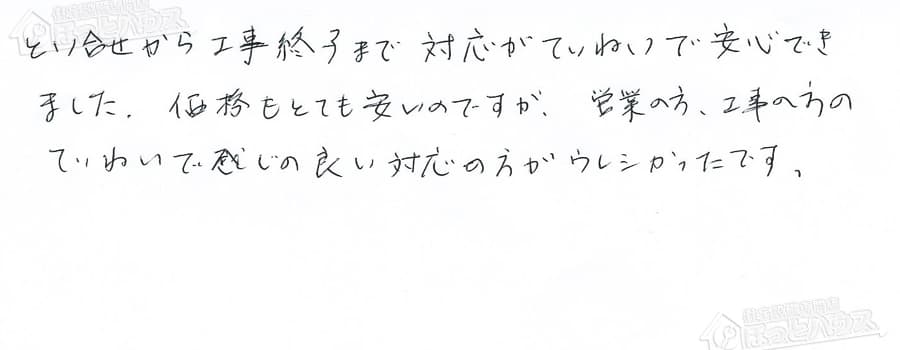 住宅設備専門店
ほっとハウス
とい合せから工事終了まで対応がていねいで安心でき
ました。価格もとても安いのですが、営業の方、工事の方の
ていねいで感じの良い対応の方がウレシかったです。
住宅設備専門店
ほっとハウス